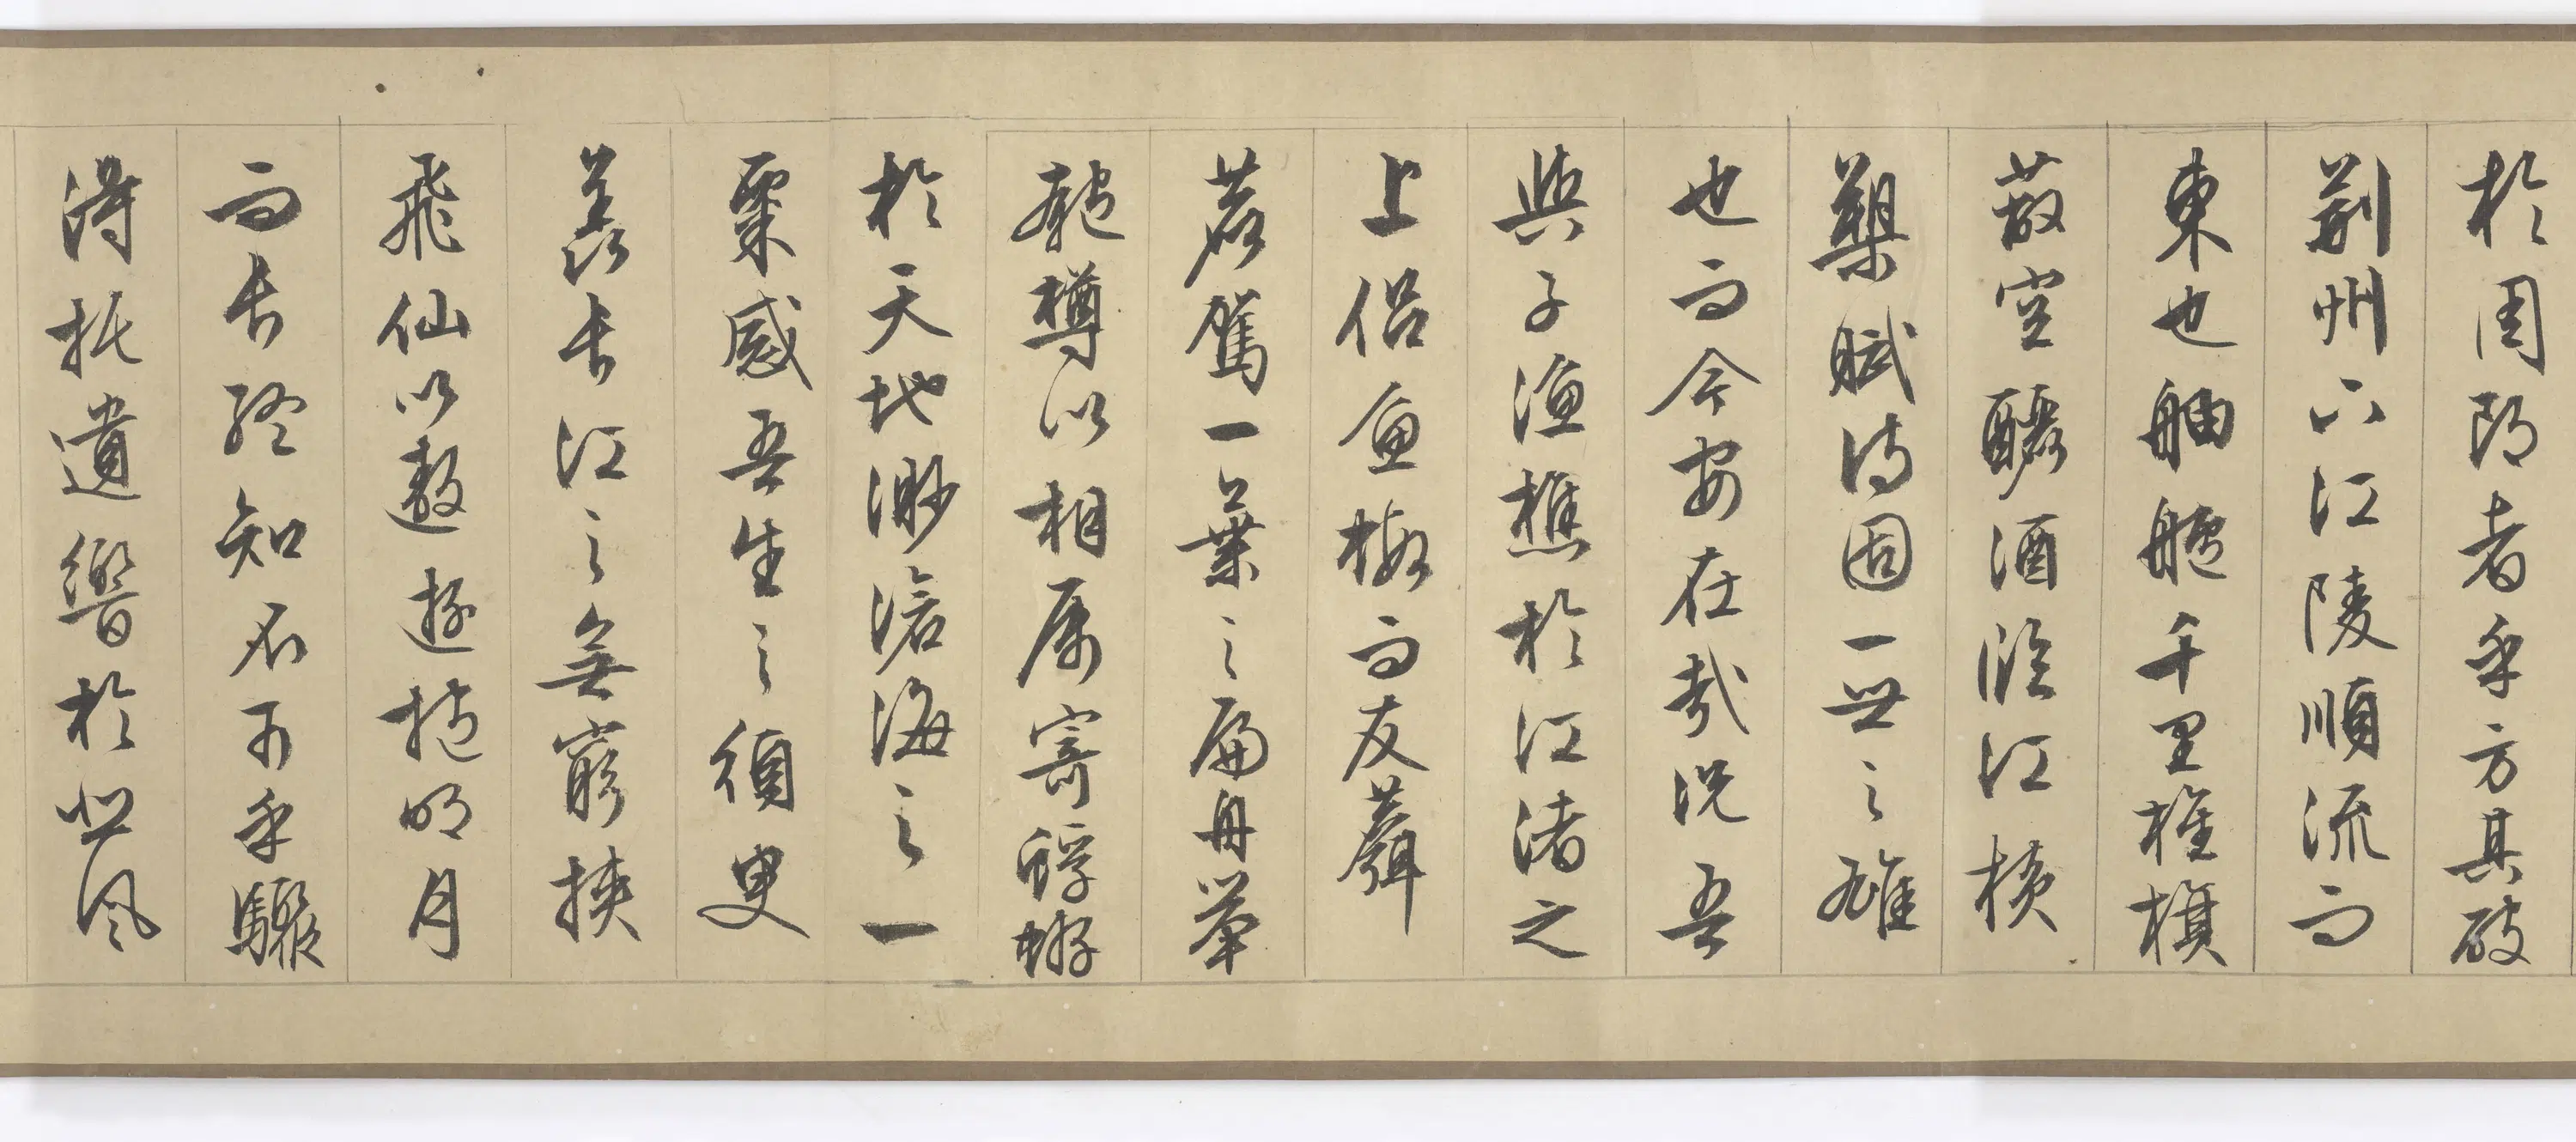 於周郎者乎方其破
荊州下江陵順流而
東也舳艫千里旌旗
蔽空釃酒臨江橫
槊賦詩固一世之雄
也而今安在哉況吾
與子漁樵於江渚之
上侶魚蝦而友麋
鹿駕一葉之扁舟舉
匏樽以相屬寄蜉蝣
於天地渺滄海之一
粟感吾生之須臾
羨長江之無窮挾
飛仙以遨遊抱明月
而長終知不可乎驟
得托遺響於悲風